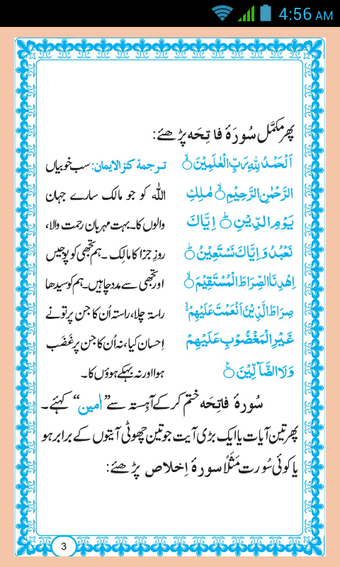 4:56 AM
پھر مکمّل سُورَۂ فاتِحَہ پڑھئے:
اَلْحَمْدُ لِلّٰهِ رَبِّ الْعٰلَمِیْنَۙ
الرَّحْمٰنِ الرَّحِیْمِۙ مٰلِكِ
یَوْمِ الدِّیْنِؕ اِیَّاكَ
نَعْبُدُ وَ اِیَّاكَ نَسْتَعِیْنُؕ
اِهْدِنَا الصِّرَاطَ الْمُسْتَقِیْمَۙ
صِرَاطَ الَّذِیْنَ اَنْعَمْتَ عَلَیْهِمْ
غَیْرِ الْمَغْضُوْبِ عَلَیْهِمْ
وَ لَا الضَّآلِّیْنَ۠
ترجمۂ کنزالایمان: سب خوبیاں
اللّٰہ کو جو مالک سارے جہان
والوں کا۔ بہت مہربان رحمت والا،
روزِ جزا کا مالک ۔ ہم تجھی کو پوجیں
اور تجھی سے مدد چاہیں۔ ہم کو سیدھا
راستہ چلا، راستہ اُن کا جن پر تو نے
اِحسان کیا، نہ اُن کا جن پر غَضَب
ہوا اور نہ بہکے ہوؤں کا۔
سُورۂ فاتِحَہ ختم کر کے آہِستہ سے ”اٰمین“ کہئے۔
پھر تین آیات یا ایک بڑی آیت جو تین چھوٹی آیتوں کے برابر ہو
یا کوئی سُورت مَثَلًا سورۂ اِخلاص پڑھئے:
3